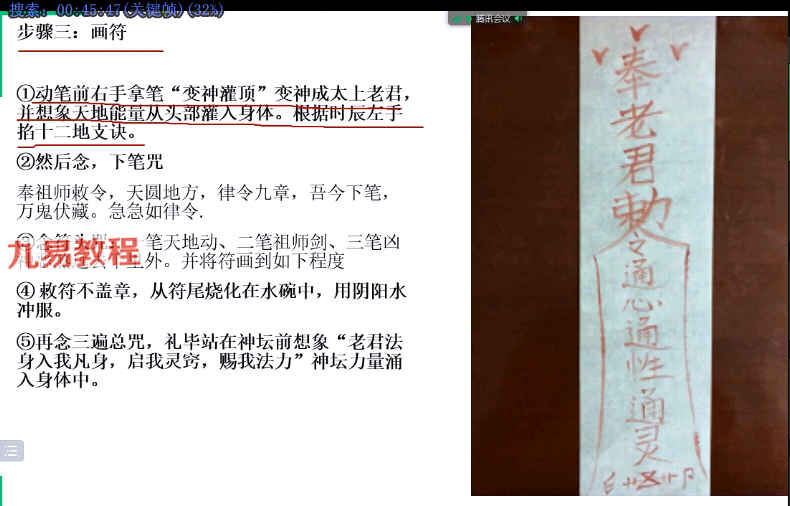 搜索: 00:45:47(关键帧)(32%)
腾讯会议
步骤三：画符
①动笔前右手拿笔“变神灌顶”变神成太上老君，
并想象天地能量从头部灌入身体。根据时辰左手
掐十二地支诀。
②然后念，下笔咒
奉祖师敕令，天圆地方，律令九章，吾今下笔，
万鬼伏藏。急急如律令.
笔天地动、二笔祖师剑、三笔凶
外。并将符画到如下程度
九易教程
④ 敕符不盖章，从符尾烧化在水碗中，用阴阳水
冲服。
⑤再念三遍总咒，礼毕站在神坛前想象“老君法
身入我凡身，启我灵窍，赐我法力”神坛力量涌
入身体中。
奉老君勅令通心通性通灵